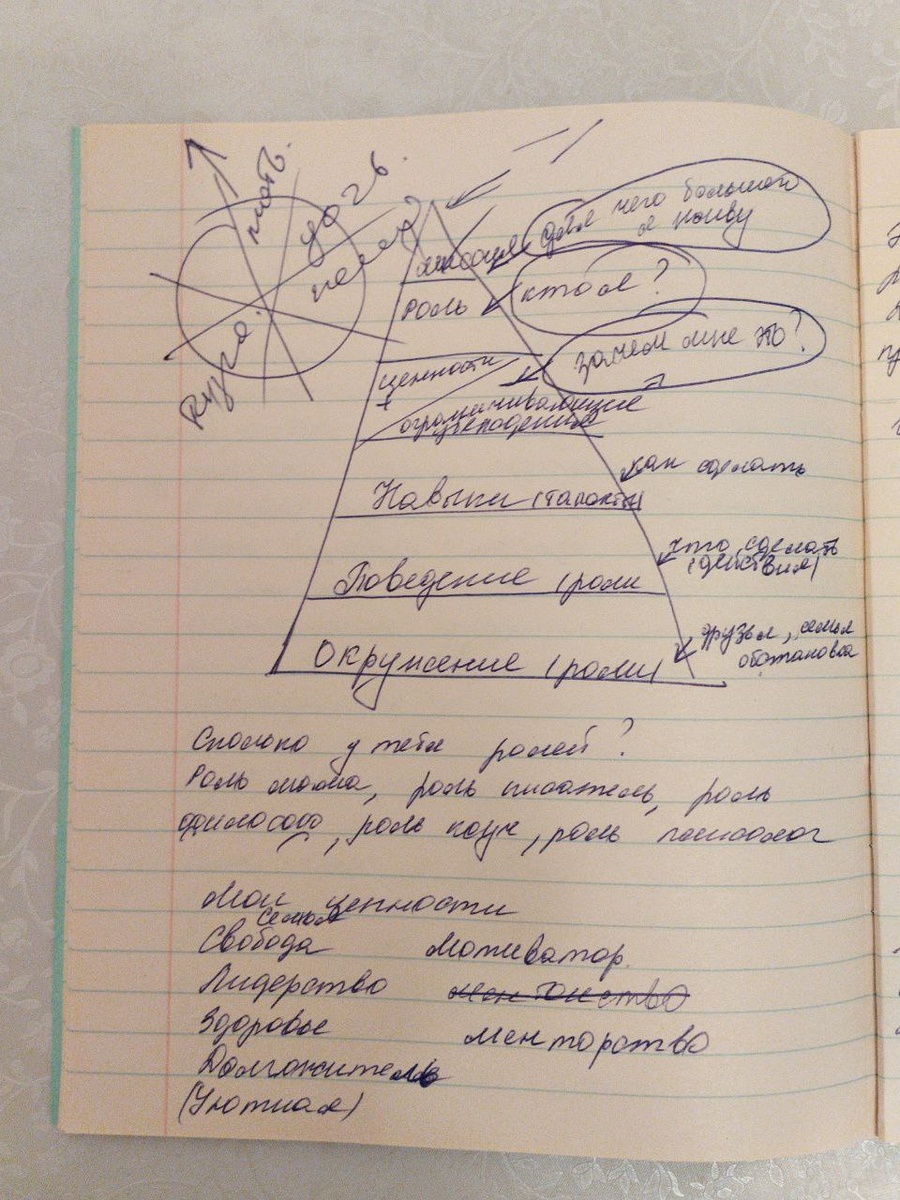 мать.
дочь.
миссия
для чего большого
я живу
Роль
кто я?
ценности
+
зачем мне это?
ограничивающие
убеждения
Навыки (таланты)
как сделать
Поведение (роли
что сделать
(действия)
Окружение (роли)
друзья, семья
обстановка
Сколько у тебя ролей?
Роль мама, роль писатель, роль
философ, роль коуч, роль психолог
Мои ценности
Семья
Свобода Мотиватор.
Лидерство
Здоровье менторство
Долгожитель
(Уютная)